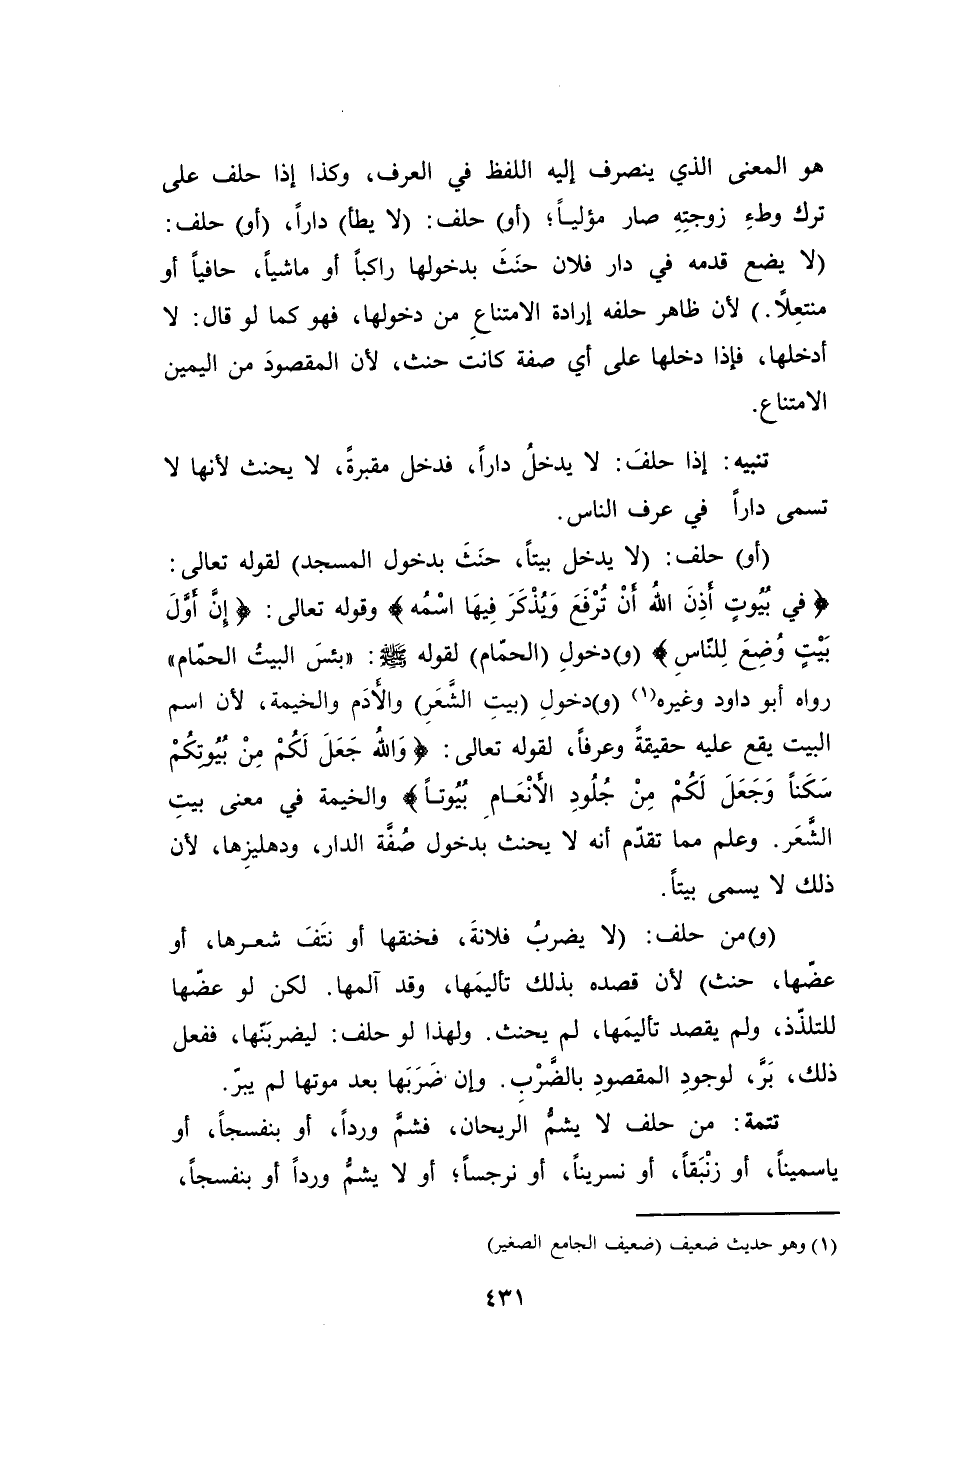 هو المعنى الذي ينصرف إليه اللفظ في العرف، وكذا إذا حلف على
ترك وطءِ زوجتِهِ صار مؤليـاً؛ (أو) حلف: (لا يطأ) داراً، (أو) حلف:
(لا يضع قدمه في دار فلان حنَثَ بدخولها راكباً أو ماشياً، حافياً أو
منتعِلًا.) لأن ظاهر حلفه إرادة الامتناعِ من دخولها، فهو كما لو قال: لا
أدخلها، فإذا دخلها على أي صفة كانت حنث، لأن المقصودَ من اليمين
الامتناع.
تنبيه: إذا حلفَ: لا يدخلُ داراً، فدخل مقبرةً، لا يحنث لأنها لا
تسمى داراً في عرف الناس.
(أو) حلف: (لا يدخل بيتاً، حنَثَ بدخول المسجد) لقوله تعالى:
﴿في بُيُوتٍ أَذِنَ اللهُ أَنْ تُرْفَعَ وَيُذْكَرَ فِيهَا اسْمُه﴾ وقوله تعالى: ﴿إِنَّ أَوَّلَ
بَيْتٍ وُضِعَ لِلنّاسِ﴾ (و)دخولِ (الحمّام) لقوله ﷺ: «بئسَ البيتُ الحمّام»
رواه أبو داود وغيره(١) (و)دخولِ (بيتِ الشَّعَر) والأَدَم والخيمة، لأن اسم
البيت يقع عليه حقيقةً وعرفاً، لقوله تعالى: ﴿وَاللهُ جَعَلَ لَكُمْ مِنْ بُيُوتِكُمْ
سَكَناً وَجَعَلَ لَكُمْ مِنْ جُلُودِ الأَنْعَـامِ بُيُوتـاً﴾ والخيمة في معنى بيتِ
الشَّعَر. وعلم مما تقدّم أنه لا يحنث بدخول صُفَّة الدار، ودهليزِها، لأن
ذلك لا يسمى بيتاً.
(و)من حلف: (لا يضربُ فلانةَ، فخنقها أو نتَفَ شعـرها، أو
عضّها، حنث) لأن قصده بذلك تأليمَها، وقد آلمها. لكن لو عضّها
للتلذّذ، ولم يقصد تأليمَها، لم يحنث. ولهذا لو حلف: ليضربَنّها، ففعل
ذلك، بَرَّ، لوجودِ المقصودِ بالضَّرْبِ. وإن ضَرَبَها بعد موتها لم يبرّ.
تتمة: من حلف لا يشمُّ الريحان، فشمَّ ورداً، أو بنفسجاً، أو
ياسميناً، أو زنْبَقاً، أو نسريناً، أو نرجساً؛ أو لا يشمُّ ورداً أو بنفسجاً،
(١) وهو حديث ضعيف (ضعيف الجامع الصغير)
٤٣١